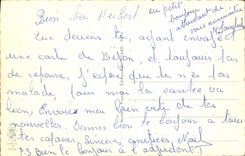 Bien cher Herbert
un petit
bonjour
attendant de
vous
Luc deviens tu, ayant envoyé
une carte de Dijon, et toujours pas
de réponse, j'espère que tu n'es pas
malade, pour moi la santée va
bien, Envoie moi bien vite de tes
nouvelles. Donnes bien le bonjour a tous
les copains Sincères amitiées, 
P.S Bien le bonjour à l'adjudant!